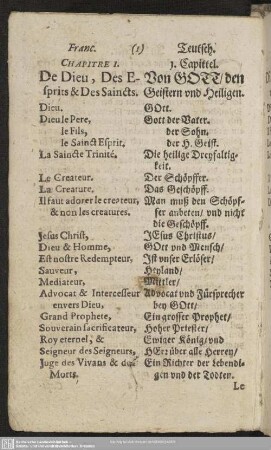 Franc. (1) Teutsch.
CHAPITRE I. 1. Capittel.
De Dieu, Des E- Von GOTT/ den
sprits & Des Saincts. Geistern vnd Heiligen.
Dieu. GOtt.
Dieu le Pere, Gott der Vater.
le Fils, der Sohn.
le Sainct Esprit. der H. Geist.
La Saincte Trinité. Die heilige Dreyfaltig-
keit.
Le Createur. Der Schöpffer.
La Creature. Das Geschöpff.
Il faut adorer le createur, Man muß den Schöpf-
& non les creatures. fer anbeten/ vnd nicht
die Geschöpff.
Jesus Christ, JEsus Christus/
Dieu & Homme, GOtt vnd Mensch/
Est nostre Redempteur, Ist vnser Erlöser/
Sauveur, Heyland/
Mediateur, Mittler/
Advocat & Intercesseur Advocat vnd Fürsprecher
envers Dieu, bey GOtt/
Grand Prophete, Ein grosser Prophet/
Souverain sacrificateur, Hoher Priester/
Roy eternel, & Ewiger König/ vnd
Seigneur des Seigneurs, HErr über alle Herren/
Juge des Vivans & des Ein Richter der Lebendi-
Morts. gen vnd der Todten.
Le